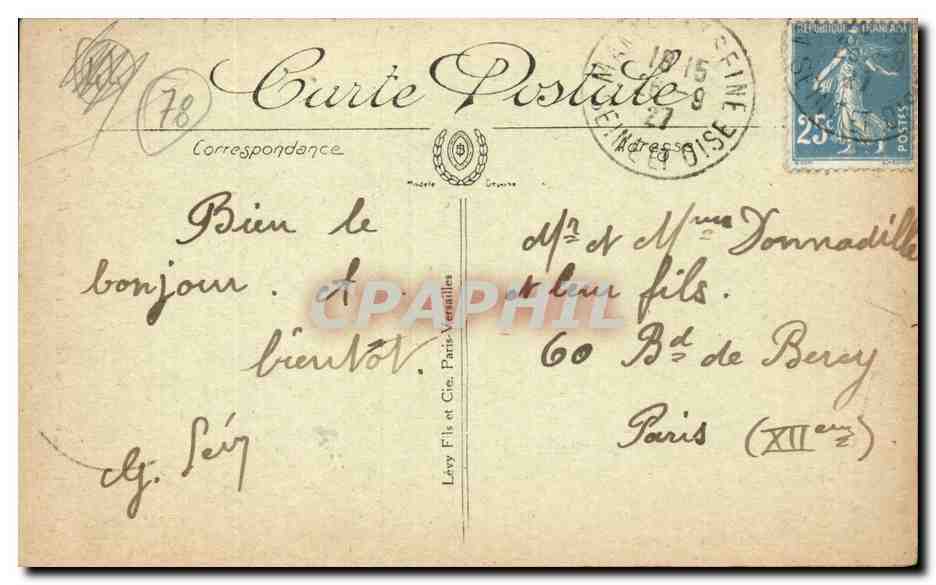 78
Carte Postale
Correspondance
Adresse
Modèle Déposé
18 15
9
27
SEINE ET OISE
REPUBLIQUE FRANÇAISE
25c
POSTES
Bien le
bonjour . et .
bientôt.
Mr et Mme Donnadille
et leur fils.
60 Bd de Bercy
Paris (XIIeme)
Lévy Fils et Cie. Paris-Versailles
CPAPHIL